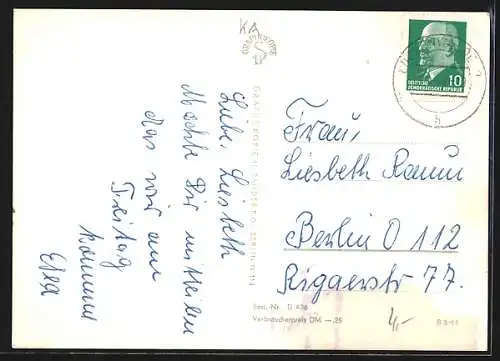 KA
Liebe Liesbeth
Möchte Dir mitteilen
das wir am
Freitag
kommen
Frau,
Liesbeth
Berlin O 112
Rigaerstr 77.
10
DEUTSCHE
DEMOKRATISCHE REPUBLIK
Best.-Nr. D 436
Verbraucherpreis DM —.25
4,-